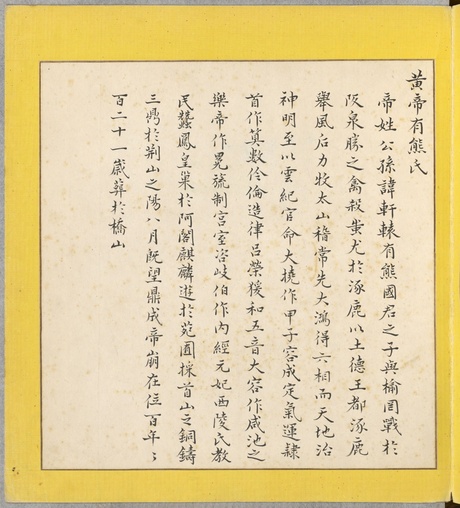 黃帝有熊氏
帝姓公孫諱軒轅有熊國君之子與榆罔戰於
阪泉勝之禽殺蚩尤於涿鹿以土德王都涿鹿
舉風后力牧太山稽常先大鴻得六相而天地治
神明至以雲紀官命大撓作甲子容成定氣運隸
首作算數伶倫造律呂榮猨和五音大容作咸池之
樂帝作冕旒制宮室咨岐伯作內經元妃西陵氏教
民蠶鳳皇巢於阿閣麒麟遊於苑囿採首山之銅鑄
三鼎於荆山之陽八月旣望鼎成帝崩在位百年〻
百二十一歲葬於橋山